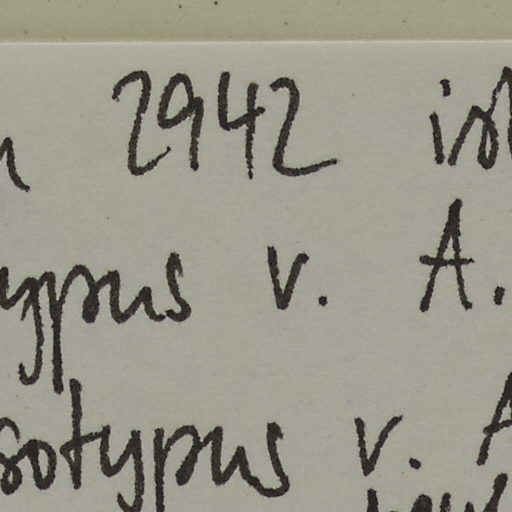 2942 ist
ypus v. A.
sotypus v. A